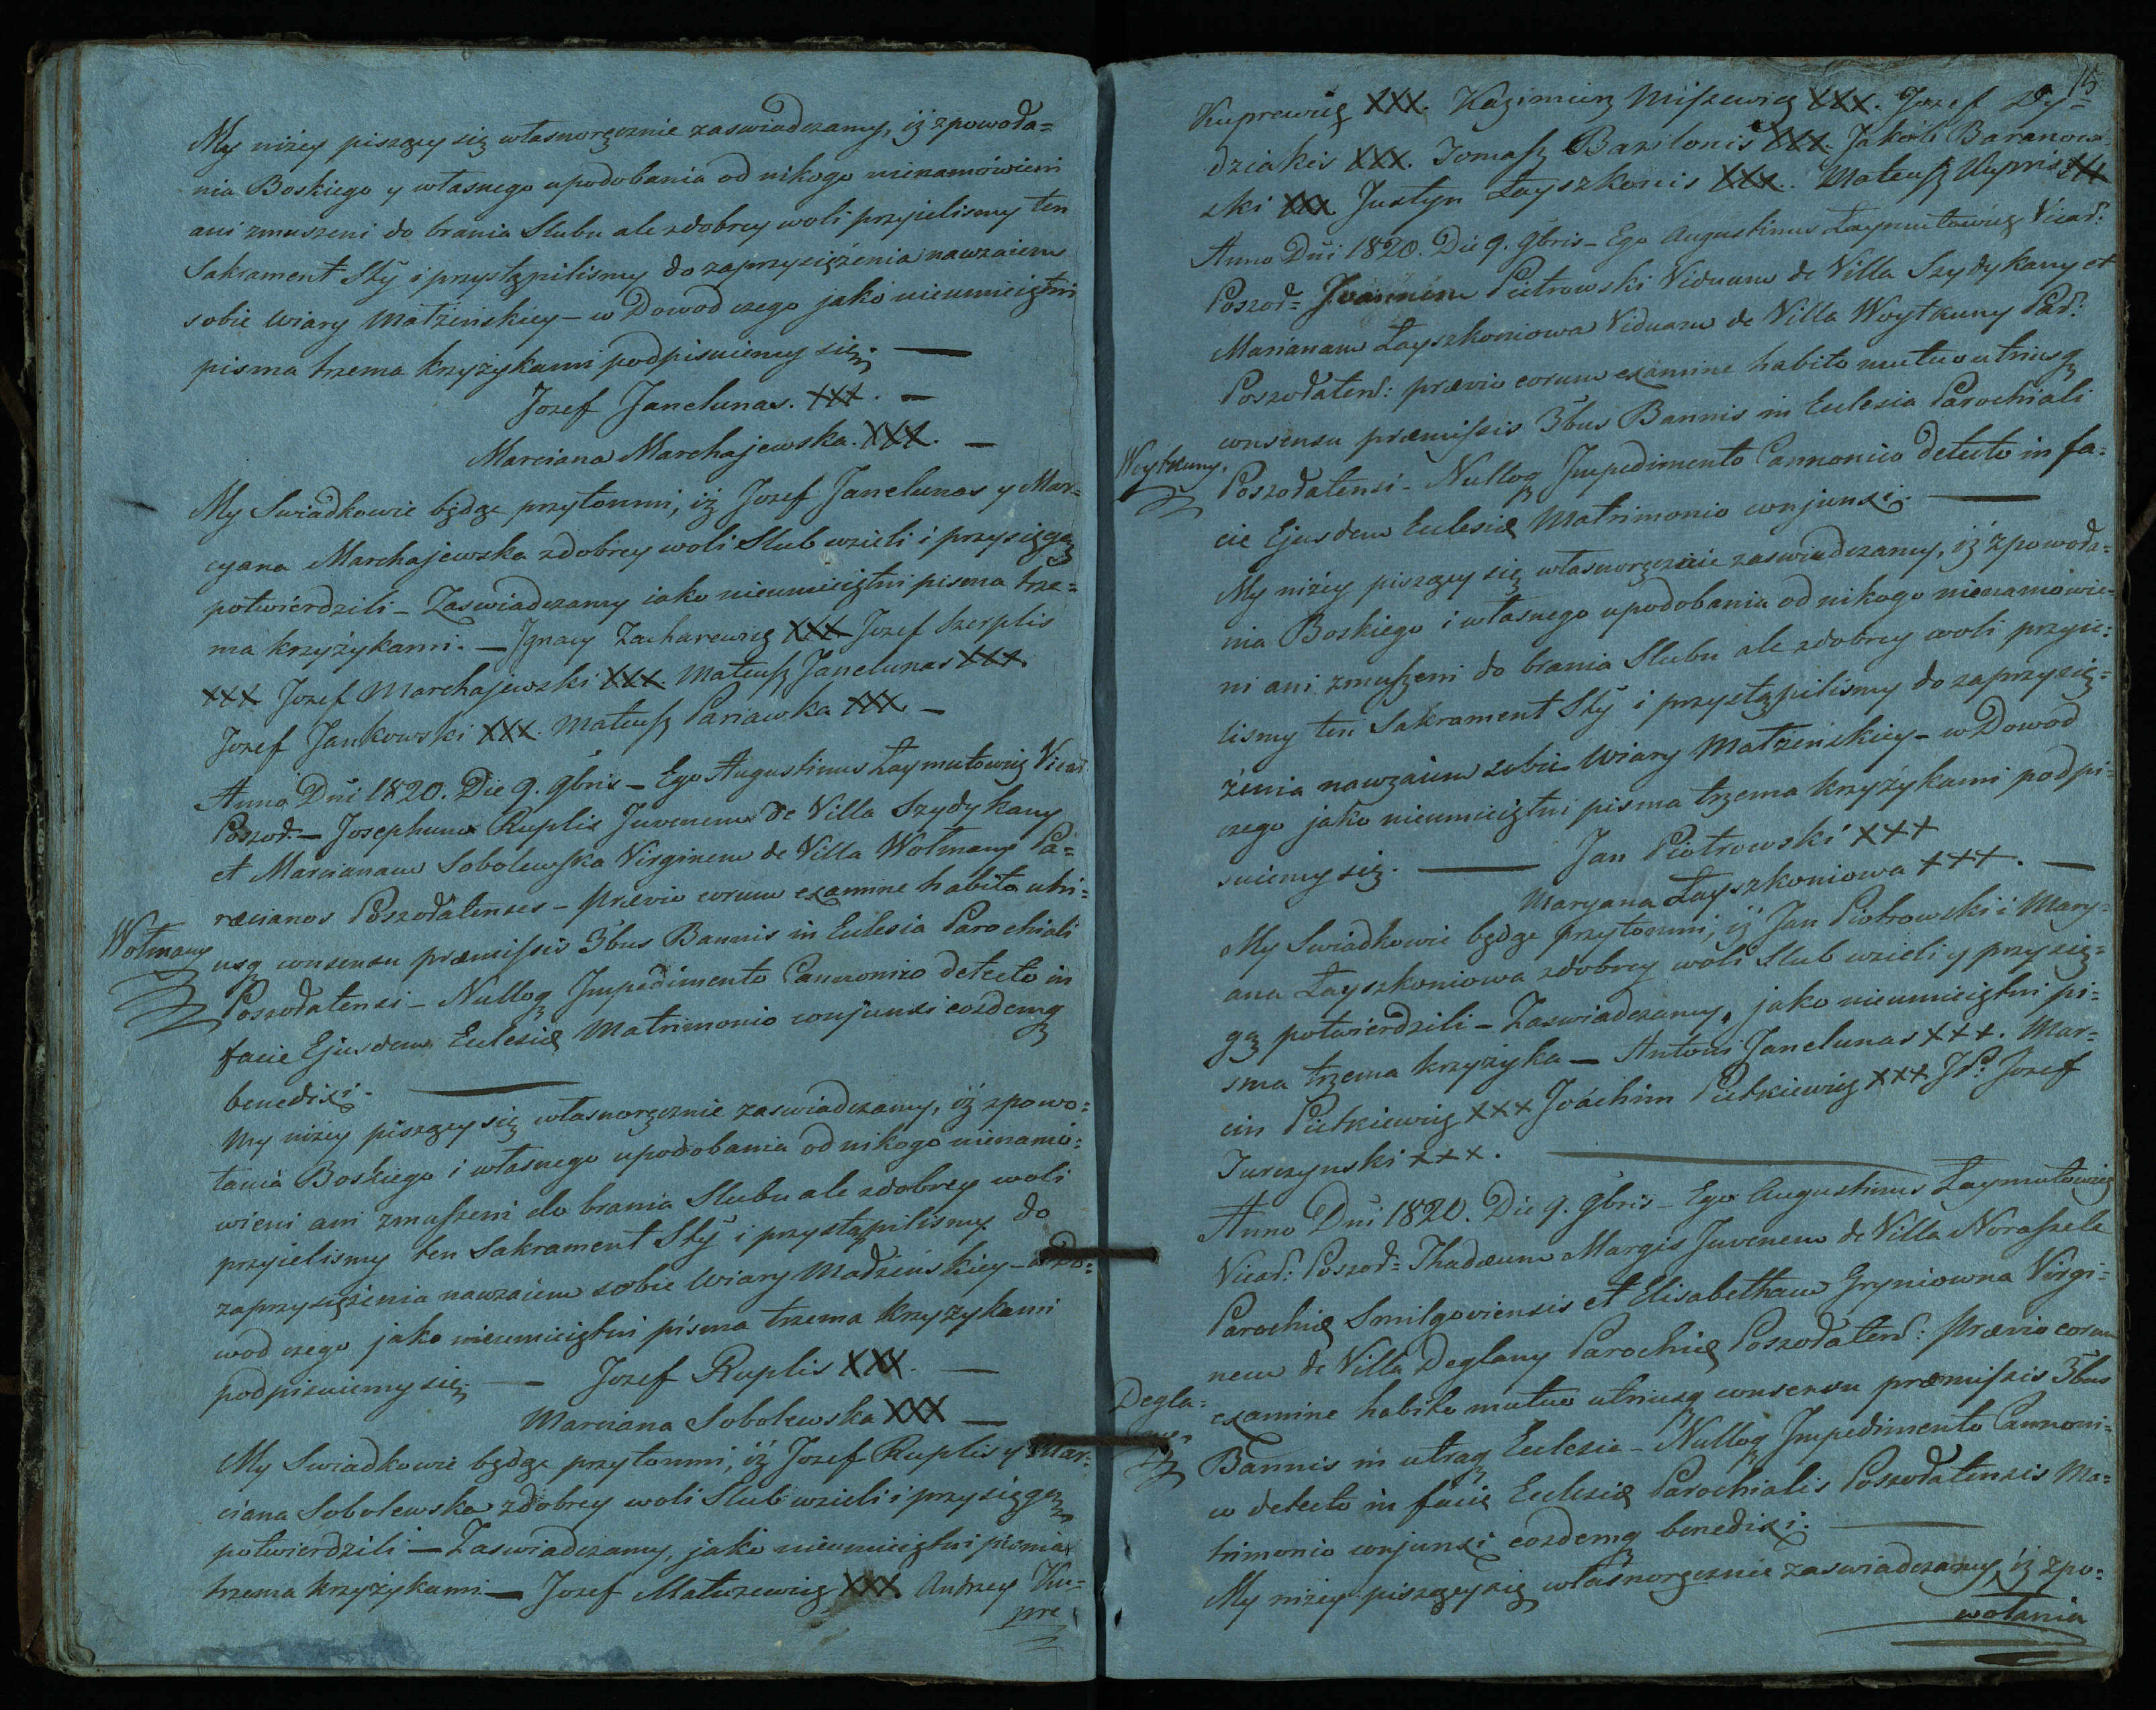 My niżey piszący się własnoręcznie zaswiadczamy, iż zpowoła=
nia Boskiego y własnego upodobania od nikogo nienamówieni
ani zmuszeni do brania Slubu ale zdobrey woli przyielismy ten
Sakrament Sty i przystąpilismy do zaprzysiężenia nawzaiem
sobie Wiary Małżeńskiey – w Dowod czego jako nieumieiętni
pisma trzema krzyżykami podpisuiemy się. —
Jozef Janelunas. XXX. —
Marciana Marchajewska. XXX. —
My Swiadkowie będąc przytomni, iż Jozef Janelunas y Mar=
cyana Marchajewska zdobrey woli Slub wzieli i przysięgą
potwierdzili – Zaswiadczamy iako nieumieiętni pisma trze=
ma krzyżykami. — Jgnacy Zacharewicz XXX Jozef Szerplis
XXX Jozef Marchajewski XXX. Mateusz Janelunas XXX.
Jozef Jankowski XXX. Mateusz Pariawka XXX. —
Anno Dni 1820. Die 9. 9bris – Ego Augustinus Laymutowicz Vicar.
Poszod. – Josephum Ruplis Juvenem de Villa Szydykany
et Marcianam Sobolewska Virginem de Villa Wołmany Pa=
rœcianos Poszodatenses – prævio eorum examine habito utri=
Wołmany
usq consensu præmissis 3bus Bannis in Eclesia Parochiali
Poszodatensi – Nulloq Jmpedimento Cannonico detecto in
facie Ejusdem Eclesię Matrimonio conjunxi eosdemq
benedixi. —
My niżey piszący się własnoręcznie zaswiadczamy, iż zpowo=
łania Boskiego i własnego upodobania od nikogo nienamó=
wieni ani zmuszeni do brania Slubu ale zdobrey woli
przyielismy ten Sakrament Sty i przystąpilismy do
zaprzysiężenia nawzaiem sobie Wiary Madżeńskiey – w Do=
wod czego jako nieumieiętni pisma trzema krzyżykami
podpisuiemy się. — Jozef Ruplis XXX. —
Marciana Sobolewska XXX —
My Swiadkowie będąc przytomni, iż Jozef Ruplis y Mar=
ciana Sobolewska zdobrey woli Slub wzieli i przysięgą
potwierdzili — Zaswiadczamy, jako nieumieiętni pisma
trzema krzyżykami — Jozef Matuzewicz XXX. Andrzey Ku=
pre
15
Kuprewicz XXX. Kazimierz Miszewicz XXX. Jozef Dy=
dziakis XXX. Tomasz Barstonis XXX. Jakób Baranow=
ski XXX. Justyn Łayszkonis XXX. Mateusz Kupris XXX
Anno Dni 1820. Die 9. 9bris – Ego Augustinus Laymutowicz Vicar.
Poszod= Joannem Pietrowski Viduum de Villa Szydykany et
Marianam Layszkoniowa Viduam de Villa Woytkuny Par.
Poszodatens: prævio eorum examine habito mutuo utriusq
consensu præmissis 3bus Bannis in Eclesia Parochiali
Woytkuny.
Poszodatensi – Nulloq Jmpedimento Cannonico detecto in fa=
cie Ejusdem Eclesię Matrimonio conjunxi. —
My niżey piszący się własnoręcznie zaswiadczamy, iż zpowoła=
nia Boskiego i własnego upodobania od nikogo nienamówie=
ni ani zmuszeni do brania Slubu ale zdobrey woli przyie=
lismy ten Sakrament Sty i przystąpilismy do zaprzysię=
żenia nawzaiem sobie Wiary Małżeńskiey – w Dowod
czego jako nieumieiętni pisma trzema krzyżykami podpi=
suiemy się. — Jan Piotrowski XXX
Maryana Layszkoniowa XXX. —
My Swiadkowie będąc przytomni, iż Jan Piotrowski i Mary=
ana Layszkoniowa zdobrey woli Slub wzieli y przysię=
gą potwierdzili – Zaswiadczamy, jako nieumieiętni pi=
sma trzema krzyżyka — Antoni Janelunas XXX. Mar=
cin Pietkiewicz XXX Joachim Pietkiewicz XXX JP. Jozef
Jurczynski XXX. —
Anno Dni 1820. Die 9. 9bris – Ego Augustinus Laymutowicz
Vicar: Poszod= Thadæum Margis Juvenem de Villa Noraszele
Parochię Smilgoviensis et Elisabetham Gryniowna Virgi=
nem de Villa Deglany Parochię Poszodatens: prævio eorum
Degla=
ny
examine habito mutuo utriusq consensu præmissis 3bus
Bannis in utraq Eclesia – Nulloq Jmpedimento Cannoni=
co detecto in facie Eclesię Parochialis Poszodatensis Ma=
trimonio conjunxi eosdemq benedixi. —
My niżey piszący się własnoręcznie zaswiadczamy, iż zpo=
wołania